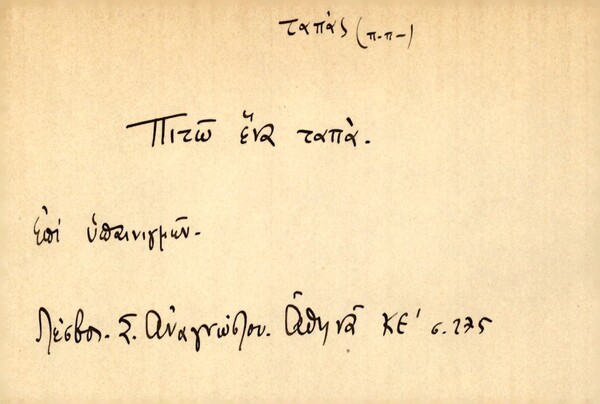 ταπᾶς (π.π-)
Πιτῶ ἕνα ταπᾶ.
ἐπὶ ὑπαινιγμῶν.
Λέσβος. Σ. Ἀναγνώστου. Ἀθηνᾶ ΚΕ' σ. 275